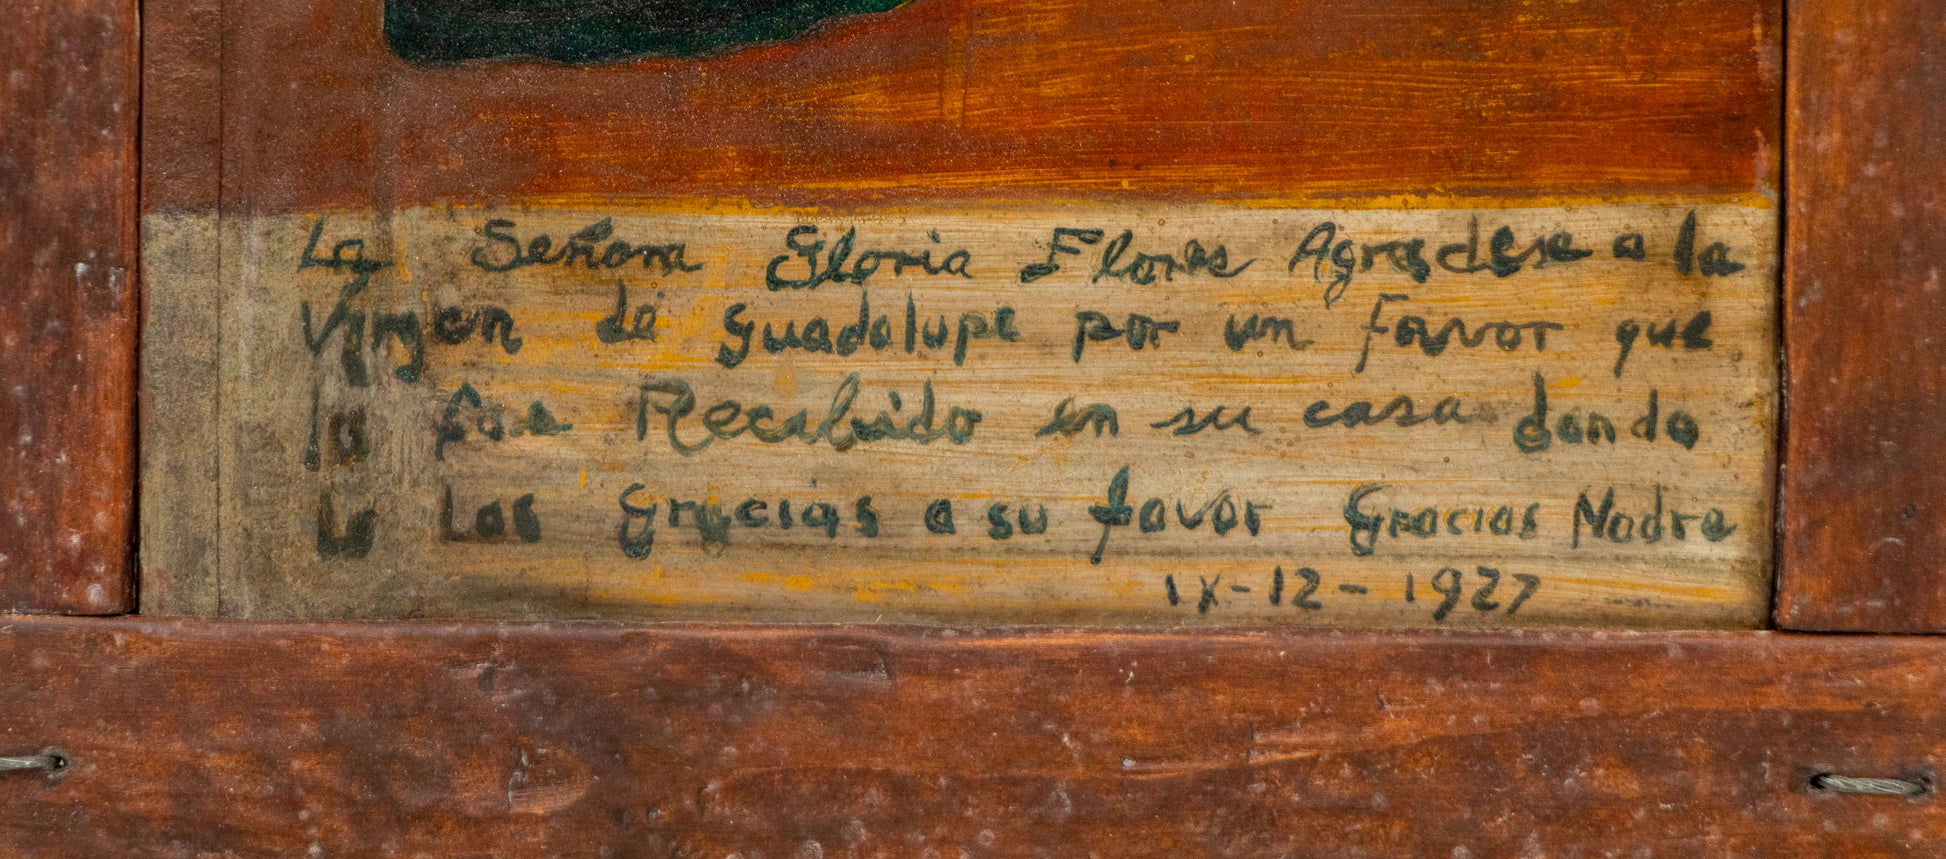 La Señora Gloria Flores Agradese a la
Virgen de Guadalupe por un Favvor que
la fue Recabido en su casa dando
le las gracias a su favor Gracias Madre
IX-12-1927